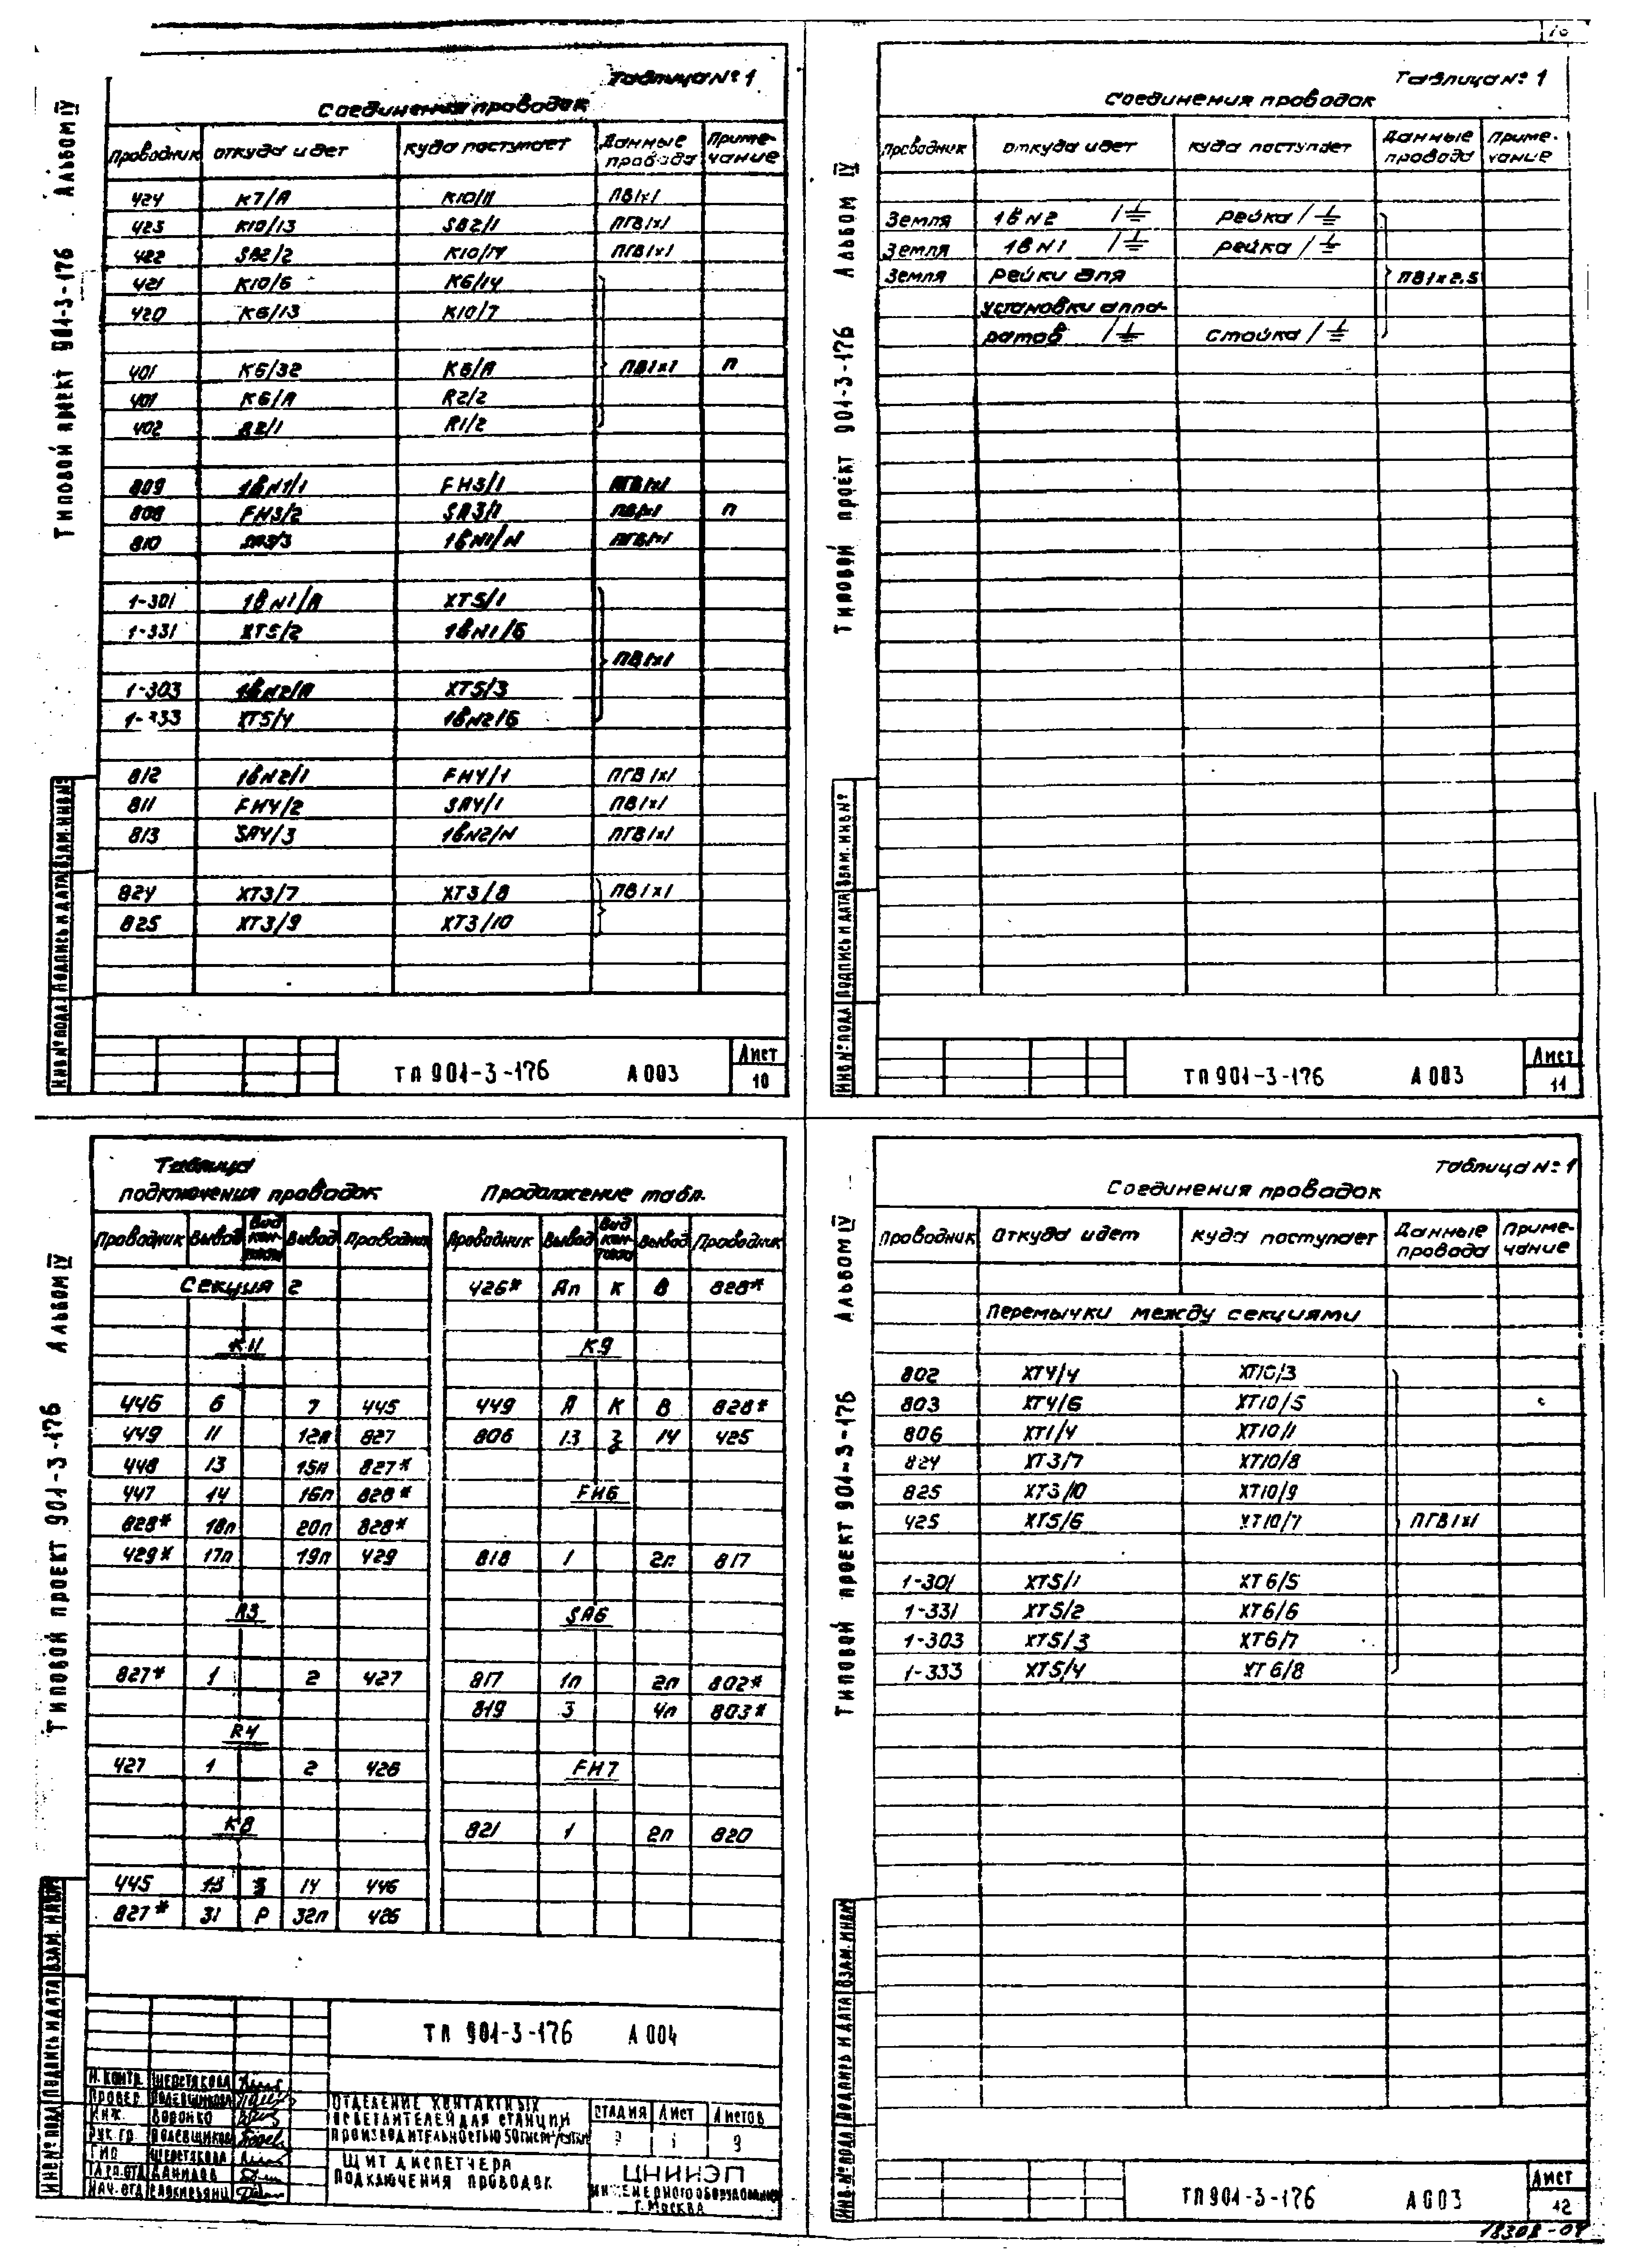 Таблица № 1
Соединения проводок
Типовой проект 904-3-176 Альбом IV
Проводник откуда идет куда поступает Данные провода Примечание
424 К7/А К10/11 ПВ1х1
423 К10/13 SB2/1 ПГВ1х1
422 SB2/2 К10/14 ПГВ1х1
421 К10/6 К6/14
420 К6/13 К10/7
401 К6/32 К6/А ПВ1х1 п
401 К6/А R2/2
402 R2/1 R1/2
809 1вN1/1 FH3/1 ПГВ1х1
808 FH3/2 SA3/1 ПВ1х1 п
810 SA3/3 1вN1/N ПГВ1х1
1-301 1вN1/А ХТ5/1
1-331 ХТ5/2 1вN1/Б
ПВ1х1
1-303 1вN2/А ХТ5/3
1-333 ХТ5/4 1вN2/Б
812 1вN2/1 FH4/1 ПГВ1х1
811 FH4/2 SA4/1 ПВ1х1
813 SA4/3 1вN2/N ПГВ1х1
824 ХТ3/7 ХТ3/8 ПВ1х1
825 ХТ3/9 ХТ3/10
Инв № подл Подпись и дата Взам. инв №
ТП 904-3-176 А 003 Лист 10
Таблица № 1
Соединения проводок
Типовой проект 904-3-176 Альбом IV
Проводник откуда идет куда поступает Данные провода Примечание
Земля 1вN2 /⏚ рейка /⏚
Земля 1вN1 /⏚ рейка /⏚
Земля рейки для ПВ1х2,5
установки аппа-
ратов /⏚ стойка /⏚
Инв № подл Подпись и дата Взам. инв №
ТП 904-3-176 А 003 Лист 11
Таблица
подключения проводок
Продолжение табл.
Типовой проект 904-3-176 Альбом IV
Проводник Вывод Вид контакта Вывод Проводник
Проводник Вывод Вид контакта Вывод Проводник
Секция 2
426* Ап К В 828*
К11
К9
446 6 7 445
449 А К В 828*
449 11 12п 827
806 13 з 14 425
448 13 15п 827*
447 14 16п 828*
FH6
828* 18п 20п 828*
429* 17п 19п 429
818 1 2п 817
R3
SA6
827* 1 2 427
817 1п 2п 802*
819 3 4п 803*
R4
427 1 2 426
FH7
К8
821 1 2п 820
445 13 з 14 446
827* 31 Р 32п 426
Инв № подл Подпись и дата Взам. инв №
ТП 904-3-176 А 004
Н. контр. Шерстякова
Провер. Полевщикова
Инж. Воронко
Рук. гр. Полевщикова
ГИП Шерстякова
Гл. отд. Данилов
Нач. отд
Отделение контактных
осветлителей для станции
производительностью 50 тыс м³/сутки
Щит диспетчера
Подключения проводок
Стадия Лист Листов
9
ЦНИИЭП
инженерного оборудования
г. Москва
Таблица № 1
Соединения проводок
Типовой проект 904-3-176 Альбом IV
Проводник Откуда идет куда поступает Данные провода Примечание
Перемычки между секциями
802 ХТ4/4 ХТ10/3
803 ХТ4/6 ХТ10/5
806 ХТ1/4 ХТ10/1
824 ХТ3/7 ХТ10/8
825 ХТ3/10 ХТ10/9
425 ХТ5/6 ХТ10/7 ПГВ1х1
1-301 ХТ5/1 ХТ6/5
1-331 ХТ5/2 ХТ6/6
1-303 ХТ5/3 ХТ6/7
1-333 ХТ5/4 ХТ6/8
Инв № подл Подпись и дата Взам. инв №
ТП 904-3-176 А 003 Лист 12
18308-04